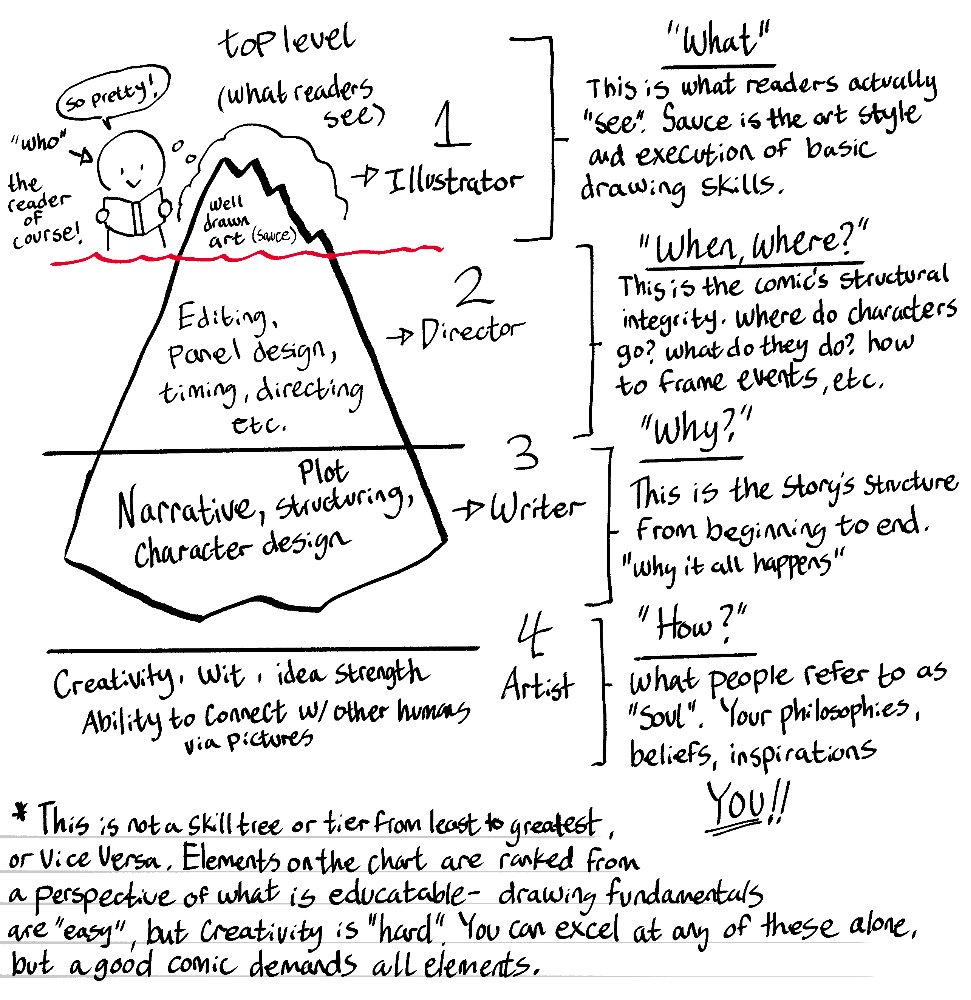 top level
(what readers
see)
so pretty!,
"who"
the
reader
of
course!
well
drawn
art (sauce)
1
Illustrator
"What"
This is what readers actually
"see". Sauce is the art style
and execution of basic
drawing skills.
Editing,
panel design,
timing, directing
etc.
2
Director
"When, where?"
This is the comic's structural
integrity. Where do characters
go? what do they do? how
to frame events, etc.
Plot
Narrative, structuring,
Character design
3
Writer
"Why?"
This is the Story's Structure
from beginning to end.
"why it all happens"
Creativity, Wit, idea strength
Ability to connect w/ other humans
via pictures
4
Artist
"How?"
what people refer to as
"soul". Your philosophies,
beliefs, inspirations
YOU!!
* This is not a skill tree or tier from least to greatest,
or Vice Versa. Elements on the chart are ranked from
a perspective of what is educatable- drawing fundamentals
are "easy", but Creativity is "hard". You can excel at any of these alone,
but a good comic demands all elements.